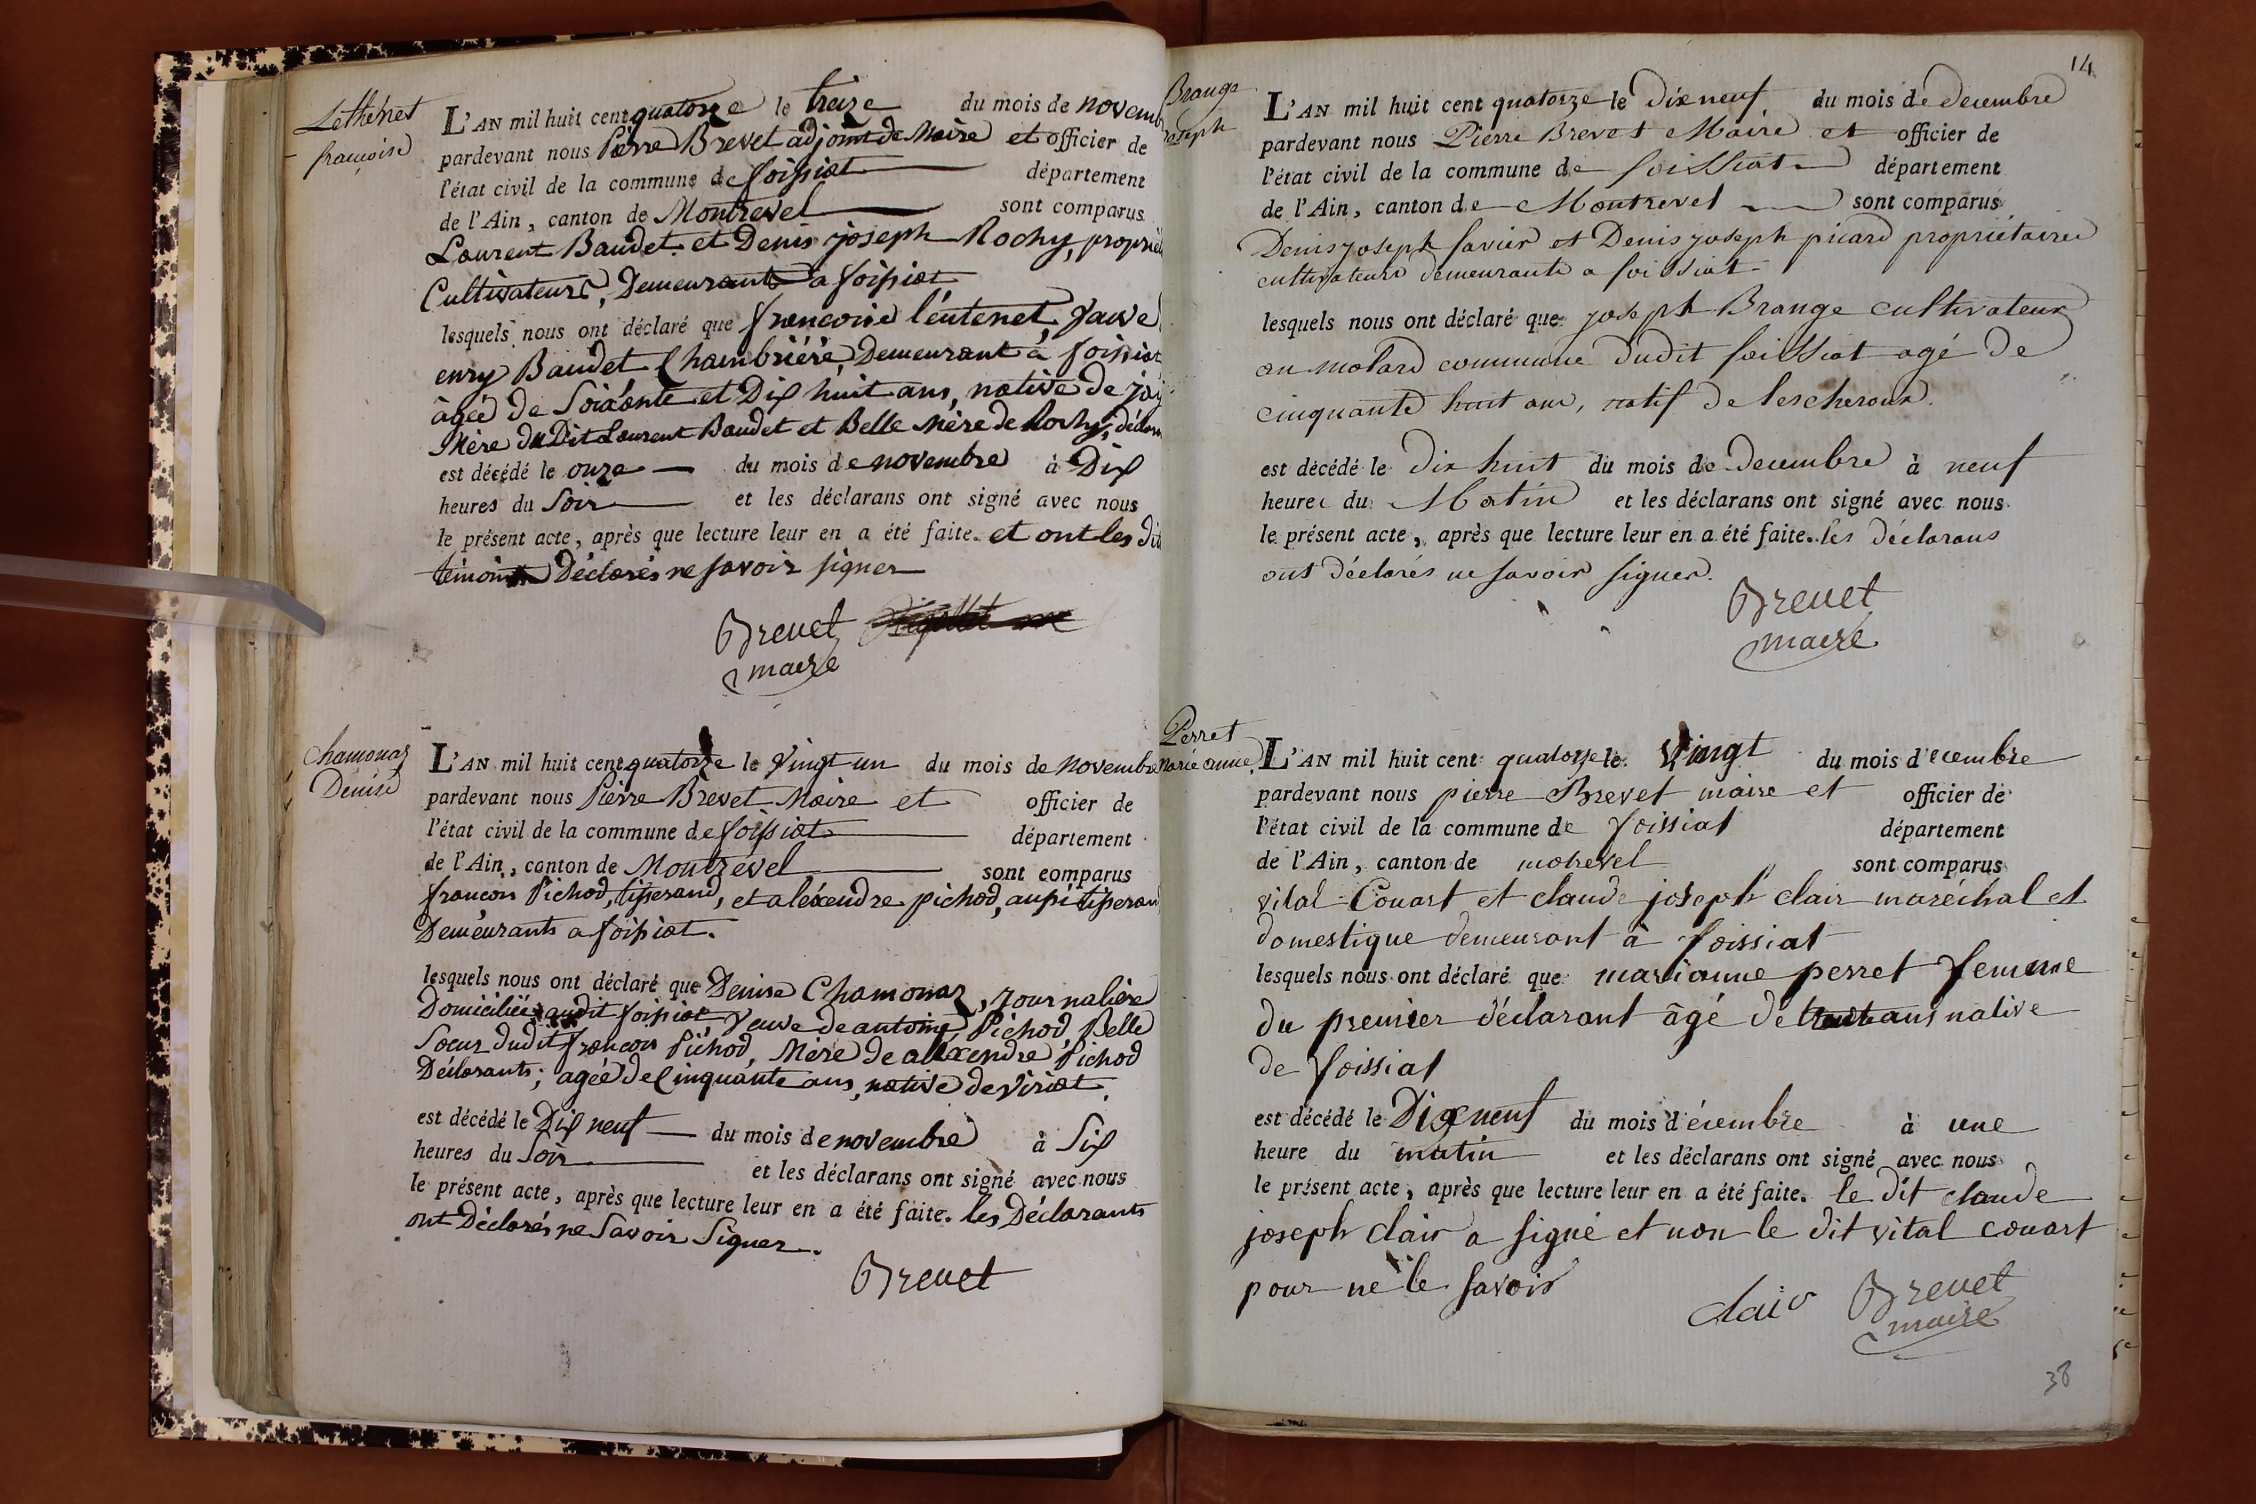 Lethenet
françoise
L'AN mil huit cent quatorze le treize du mois de novemb
pardevant nous Pierre Brevet adjoint de Maire et officier de
l'état civil de la commune de foissiat département
de l'Ain, canton de Montrevel sont comparus
Laurent Baudet et Denis joseph Rochy, proprié
Cultivateurs, Demeurants a foissiat
lesquels nous ont déclaré que françoise léutenet, vauve
enry Baudet Chambrière, Demeurant à foissiat
âgée de Soixante et Dix huit ans, native de
Mère du Dit Laurent Baudet et Belle Mère de Rochy, déclar
est décédé le onze du mois de novembre à Dix
heures du Soir et les déclarans ont signé avec nous
le présent acte, après que lecture leur en a été faite. et ont les dit
témoins Déclarés ne savoir signer
Brevet
maire
chamonaz
Denise
L'AN mil huit cent quatorze le vingt un du mois de novembre
pardevant nous Pierre Brevet Maire et officier de
l'état civil de la commune de foissiat département
de l'Ain, canton de Montrével sont comparus
françois Pichod, tisserand, et aléxendre pichod, aussi tisseran
Demeurants a foissiat.
lesquels nous ont déclaré que Denise Chamonaz, journalière
Domiciliée audit foissiat veuve de antoine Pichod, Belle
Soeur dudit françois Pichod, Mère de alexendre Pichod
Déclarants; agée de Cinquante ans, native de viriat.
est décédé le Dix neuf du mois de novembre à Six
heures du Soir et les déclarans ont signé avec nous
le présent acte, après que lecture leur en a été faite. les Déclarants
ont Déclarés ne Savoir Signer.
Brevet
14
Brange
joseph
L'AN mil huit cent quatorze le Dix neuf du mois de decembre
pardevant nous Pierre Brevet Maire et officier de
l'état civil de la commune de foissiat département
de l'Ain, canton de Montrevel sont comparus
Denis joseph favier et Denis joseph picard propriétaires
cultivateurs demeurants a foissiat
lesquels nous ont déclaré que joseph Brange cultivateur
au molard commune dudit foissiat agé de
cinquante huit ans, natif de lescheroux.
est décédé le dix huit du mois de Decembre à neuf
heures du Matin et les déclarans ont signé avec nous
le présent acte, après que lecture leur en a été faite. les déclarans
ont déclarés ne savoir signer.
Brevet
maire
Perret
marie anne
L'AN mil huit cent quatorze le vingt du mois d'ecembre
pardevant nous pierre Brevet maire et officier de
l'état civil de la commune de foissiat département
de l'Ain, canton de motrevel sont comparus
vital Couart et claude joseph clair maréchal et
domestique demeurant à foissiat
lesquels nous ont déclaré que marianne perret femme
du premier déclarant âgé de ans native
de foissiat
est décédé le Dix neuf du mois d'écembre à une
heure du matin et les déclarans ont signé avec nous
le présent acte, après que lecture leur en a été faite. le dit claude
joseph clair a signé et non le dit vital couart
pour ne le savoir
clair Brevet
maire
38